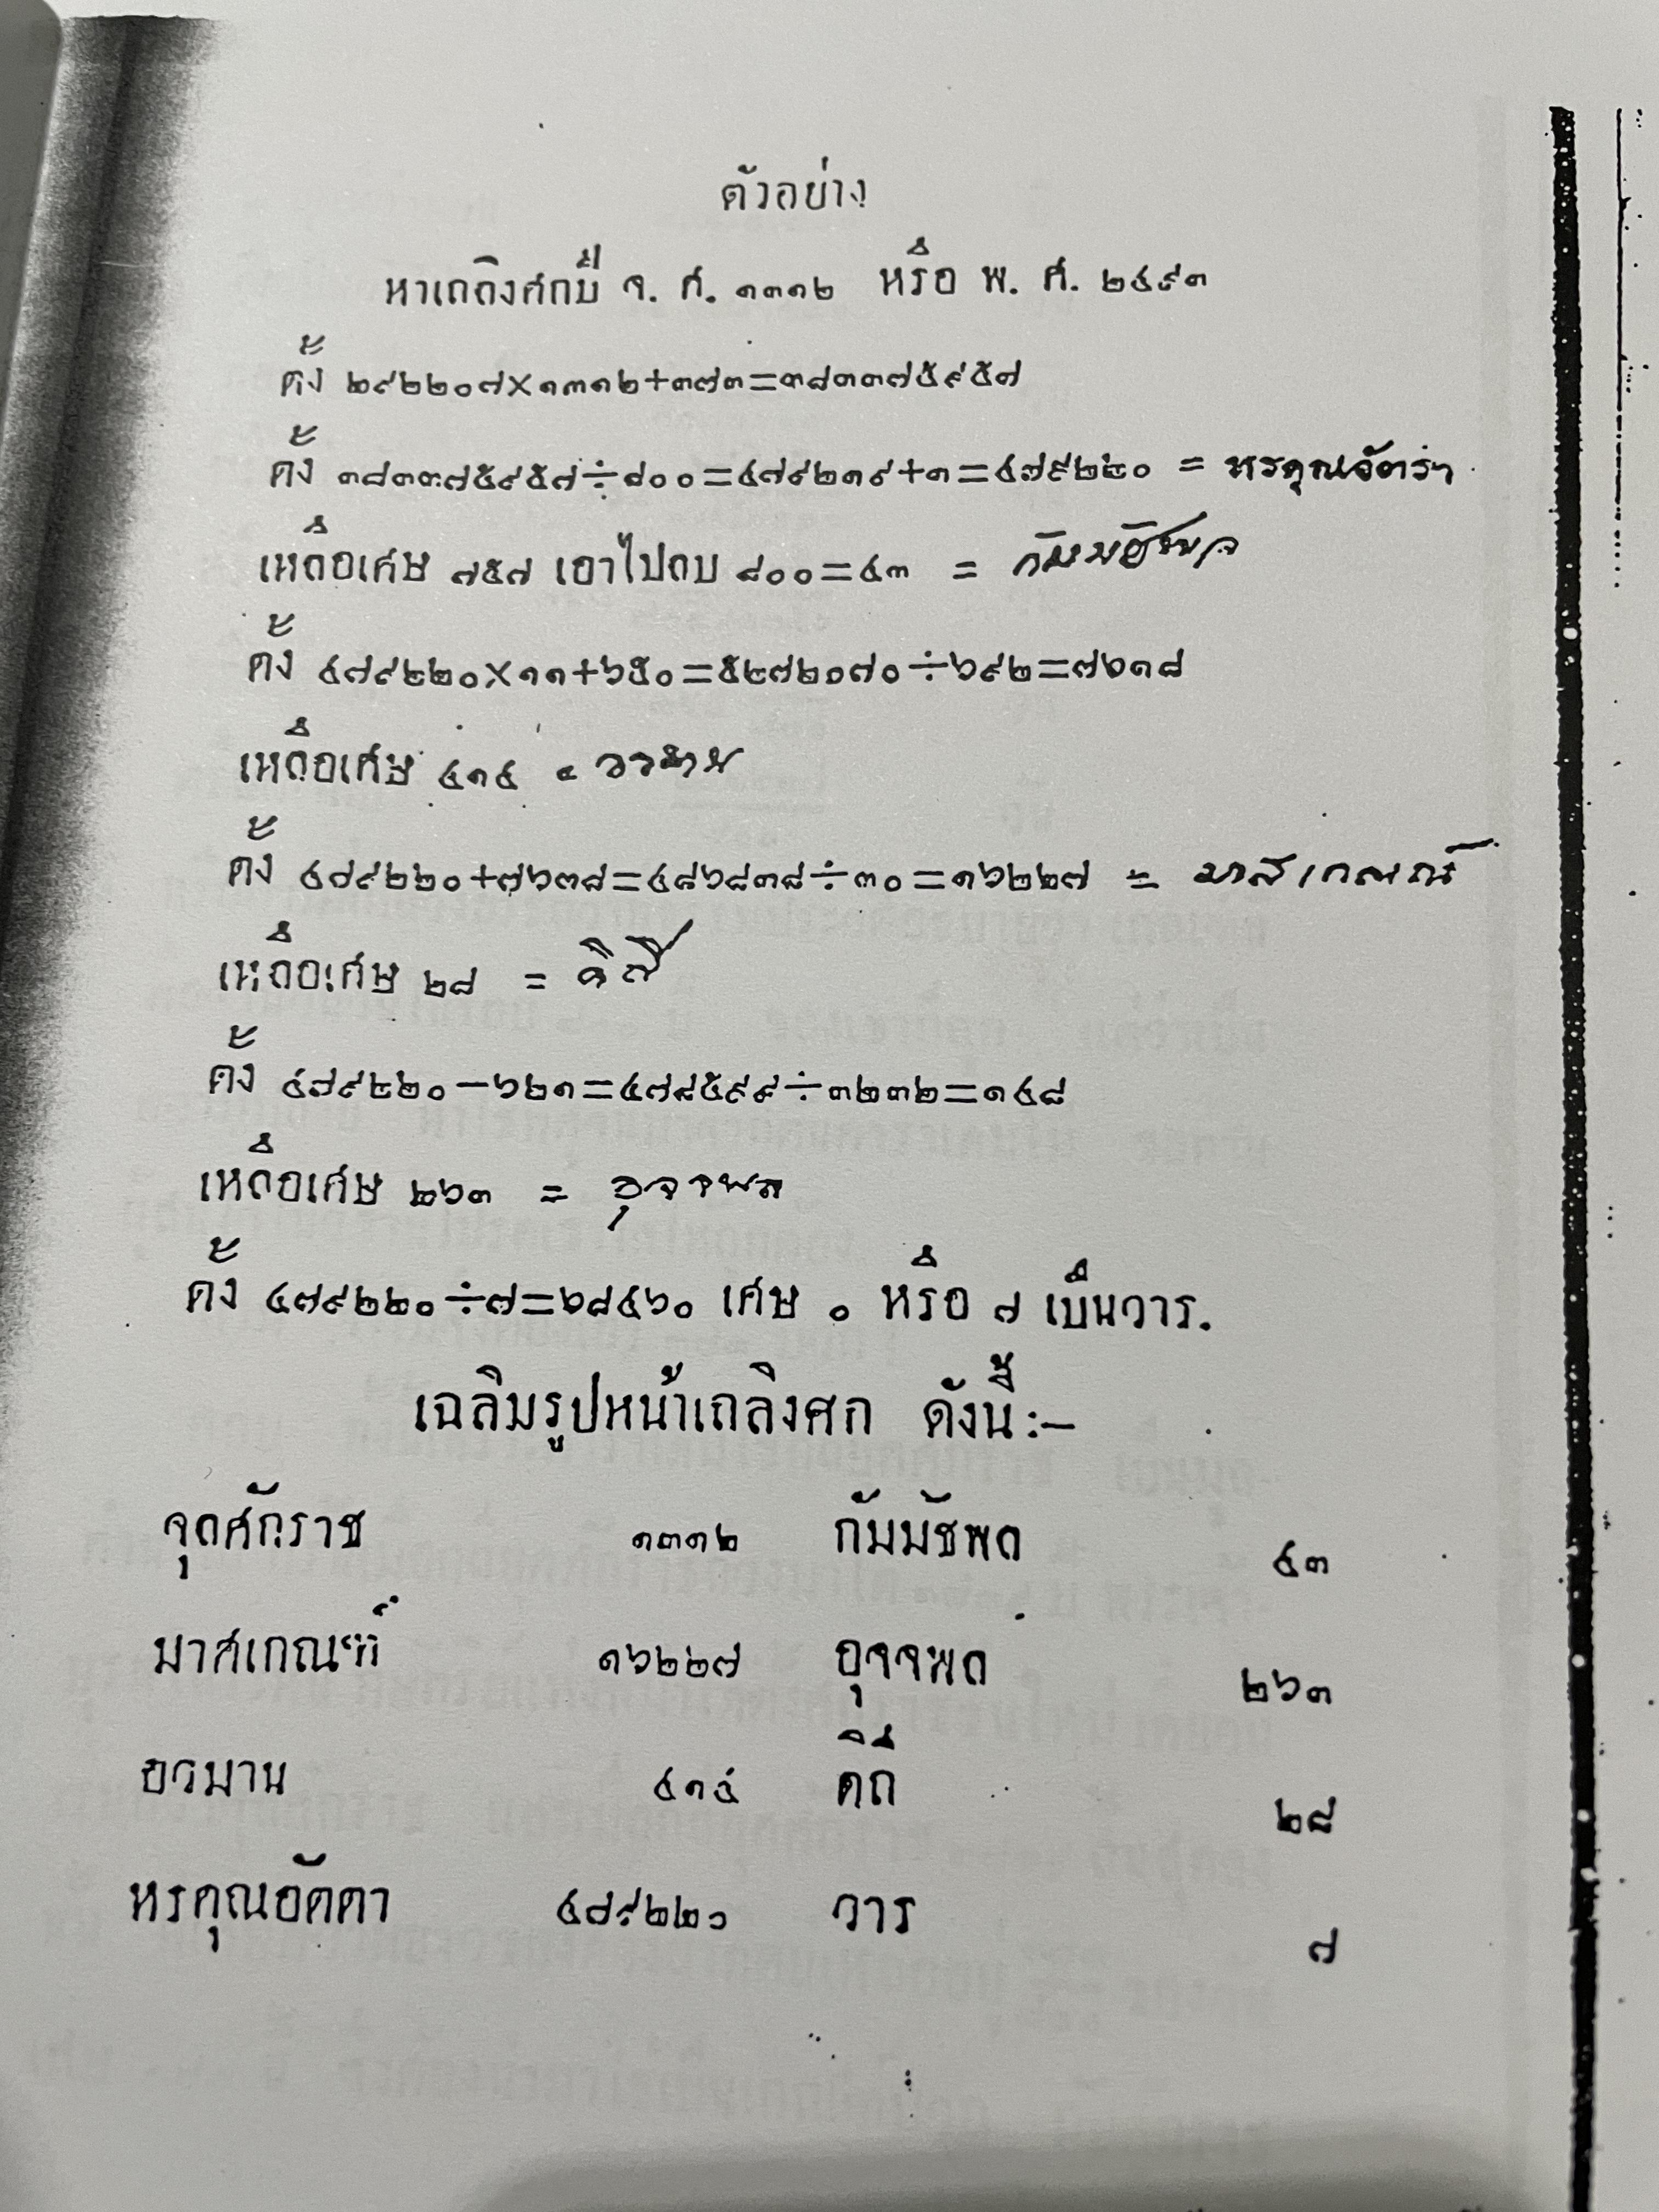 ตัวอย่าง
หาเถลิงศกปี จ. ศ. ๑๓๑๒ หรือ พ. ศ. ๒๔๙๓
ตั้ง ๒๙๒๒๐๗×๑๓๑๒+๓๗๓=๓๘๓๓๗๕๙๕๗
ตั้ง ๓๘๓๓๗๕๙๕๗÷๘๐๐=๔๗๙๒๑๙+๑=๔๗๙๒๒๐ = หรคุณอัตตา
เหลือเศษ ๗๕๗ เอาไปลบ ๘๐๐=๔๓ = กัมมัชพล
ตั้ง ๔๗๙๒๒๐×๑๑+๖๕๐=๕๒๗๒๐๗๐÷๖๙๒=๗๖๑๘
เหลือเศษ ๔๑๔ = อวมาน
ตั้ง ๔๗๙๒๒๐+๗๖๓๘=๔๘๖๘๓๘÷๓๐=๑๖๒๒๗ = มาสเกณฑ์
เหลือเศษ ๒๘ = ดิถี
ตั้ง ๔๗๙๒๒๐-๖๒๑=๔๗๘๕๙๙÷๓๒๓๒=๑๔๘
เหลือเศษ ๒๖๓ = อุจจพล
ตั้ง ๔๗๙๒๒๐÷๗=๖๘๔๖๐ เศษ ๐ หรือ ๗ เป็นวาร.
เฉลิมรูปหน้าเถลิงศก ดังนี้:-
จุลศักราช ๑๓๑๒ กัมมัชพล ๔๓
มาสเกณฑ์ ๑๖๒๒๗ อุจจพล ๒๖๓
อวมาน ๔๑๔ ดิถี ๒๘
หรคุณอัตตา ๔๗๙๒๒๐ วาร ๗